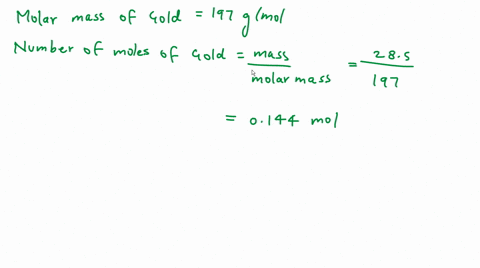 Molar mass of Gold = 197 g/mol
Number of moles of Gold = mass / molar mass = 28.5 / 197
= 0.144 mol